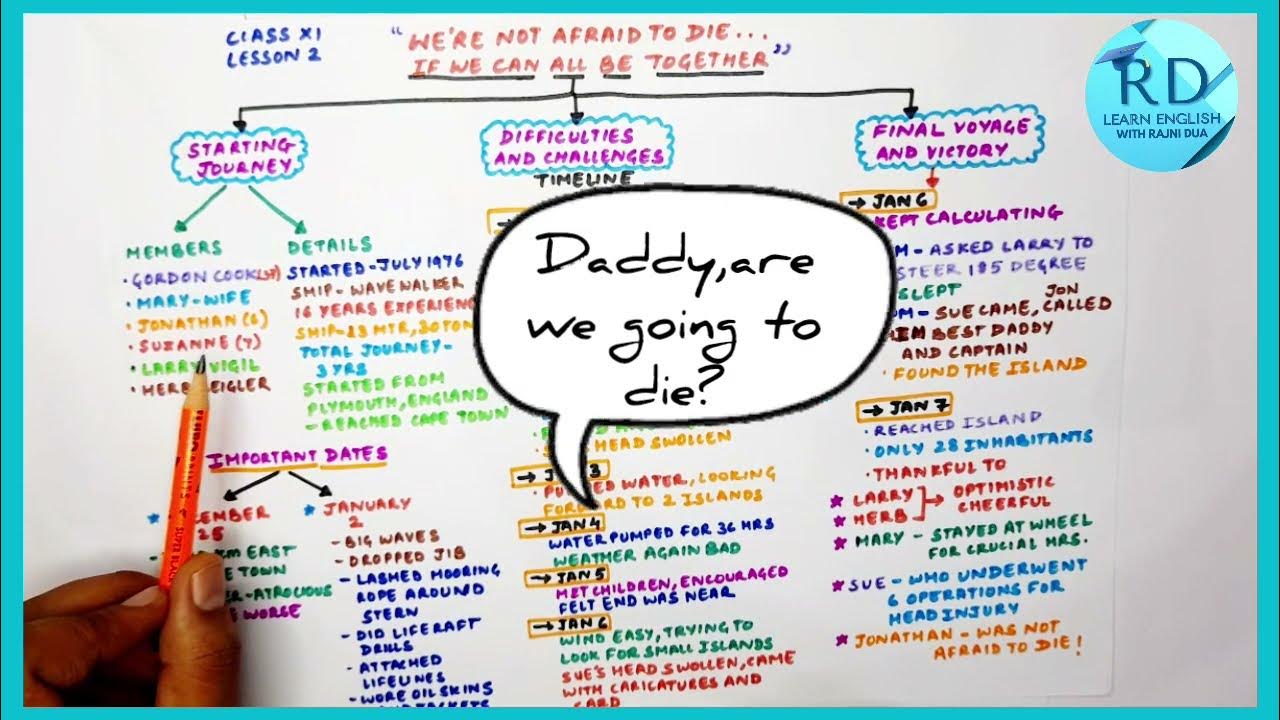 CLASS XI
LESSON 2
"WE'RE NOT AFRAID TO DIE...
IF WE CAN ALL BE TOGETHER"
RD
LEARN ENGLISH
WITH RAJNI DUA
STARTING
JOURNEY
MEMBERS
• GORDON COOK(37)
• MARY-WIFE
• JONATHAN (6)
• SUZANNE (7)
• LARRY VIGIL
• HERB EIGLER
DETAILS
STARTED-JULY 1976
SHIP-WAVE WALKER
16 YEARS
SHIP-23 MTR, 30 TON
TOTAL JOURNEY-
3 YRS
STARTED FROM
PLYMOUTH, ENGLAND
- REACHED CAPE TOWN
IMPORTANT DATES
25
EAST
TOWN
-ATROCIOUS
WORSE
JANUARY
2
- BIG WAVES
- DROPPED JIB
- LASHED MOORING
ROPE AROUND
STERN
- DID LIFERAFT
DRILLS
- ATTACHED
LIFELINES
- WORE OILSKINS
DIFFICULTIES
AND CHALLENGES
TIMELINE
Daddy,are
we going to
die?
HEAD SWOLLEN
3
WATER, LOOKING
TO 2 ISLANDS
→ JAN 4
WATER PUMPED FOR 36 HRS
WEATHER AGAIN BAD
→ JAN 5
MET CHILDREN, ENCOURAGED
FELT END WAS NEAR
→ JAN 6
WIND EASY, TRYING TO
LOOK FOR SMALL ISLANDS
SUE'S HEAD SWOLLEN, CAME
WITH CARICATURES AND
CARD
FINAL VOYAGE
AND VICTORY
→ JAN 6
KEPT CALCULATING
- ASKED LARRY TO
STEER 185 DEGREE
SLEPT
- SUE CAME, JON CALLED
BEST DADDY
AND CAPTAIN
• FOUND THE ISLAND
→ JAN 7
• REACHED ISLAND
• ONLY 28 INHABITANTS
• THANKFUL TO
★ LARRY
★ HERB
→ OPTIMISTIC
CHEERFUL
★ MARY - STAYED AT WHEEL
FOR CRUCIAL HRS.
★ SUE - WHO UNDERWENT
6 OPERATIONS FOR
HEAD INJURY
★ JONATHAN - WAS NOT
AFRAID TO DIE!